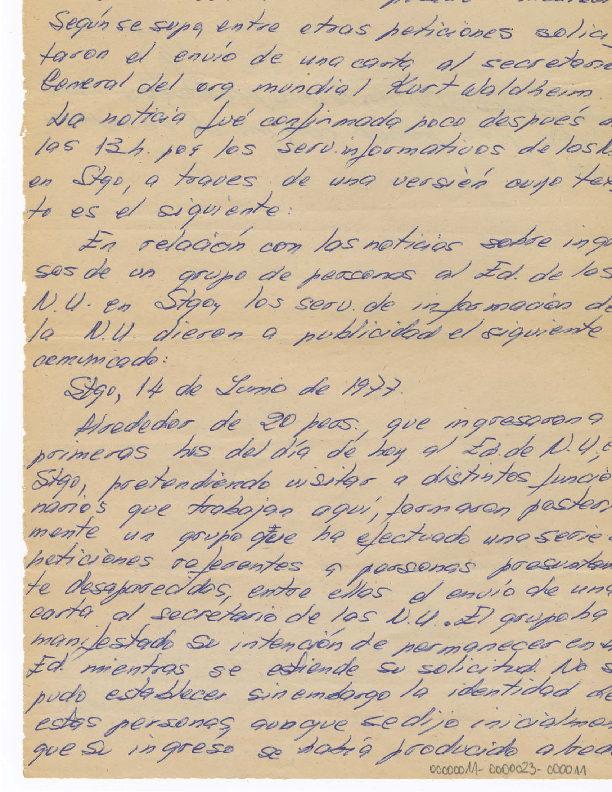 Según se supo, entre otras peticiones solici
taron el envío de una carta al secretario
General del org. mundial Kurt Waldheim.
La noticia fué confirmada poco después a
las 13 h. por los serv. informativos de las
en Stgo, a traves de una versión cuyo tex
to es el siguiente:
En relación con las noticias sobre ingre
sos de un grupo de personas al Ed. de las
N.U. en Stgo, los serv. de información de
la N.U. dieron a publicidad el siguiente
comunicado:
Stgo, 14 de Junio de 1977.
Alrededor de 20 pers., que ingresaron a
primeras hrs del día de hoy al Ed. de N.U.,
Stgo, pretendiendo visitar a distintos funcio
narios que trabajan aquí, formaron posteri
mente un grupo que ha efectuado una serie
peticiones referentes a personas presuntam
te desaparecidos, entre ellas el envío de una
carta al secretario de las N.U.. El grupo ha
manifestado su intención de permanecer en
Ed. mientras se atiende su solicitud. No s
pudo establecer sin embargo la identidad de
estas personas, aunque se dijo inicialmen
que su ingreso se había producido
0000011-0000023-000011